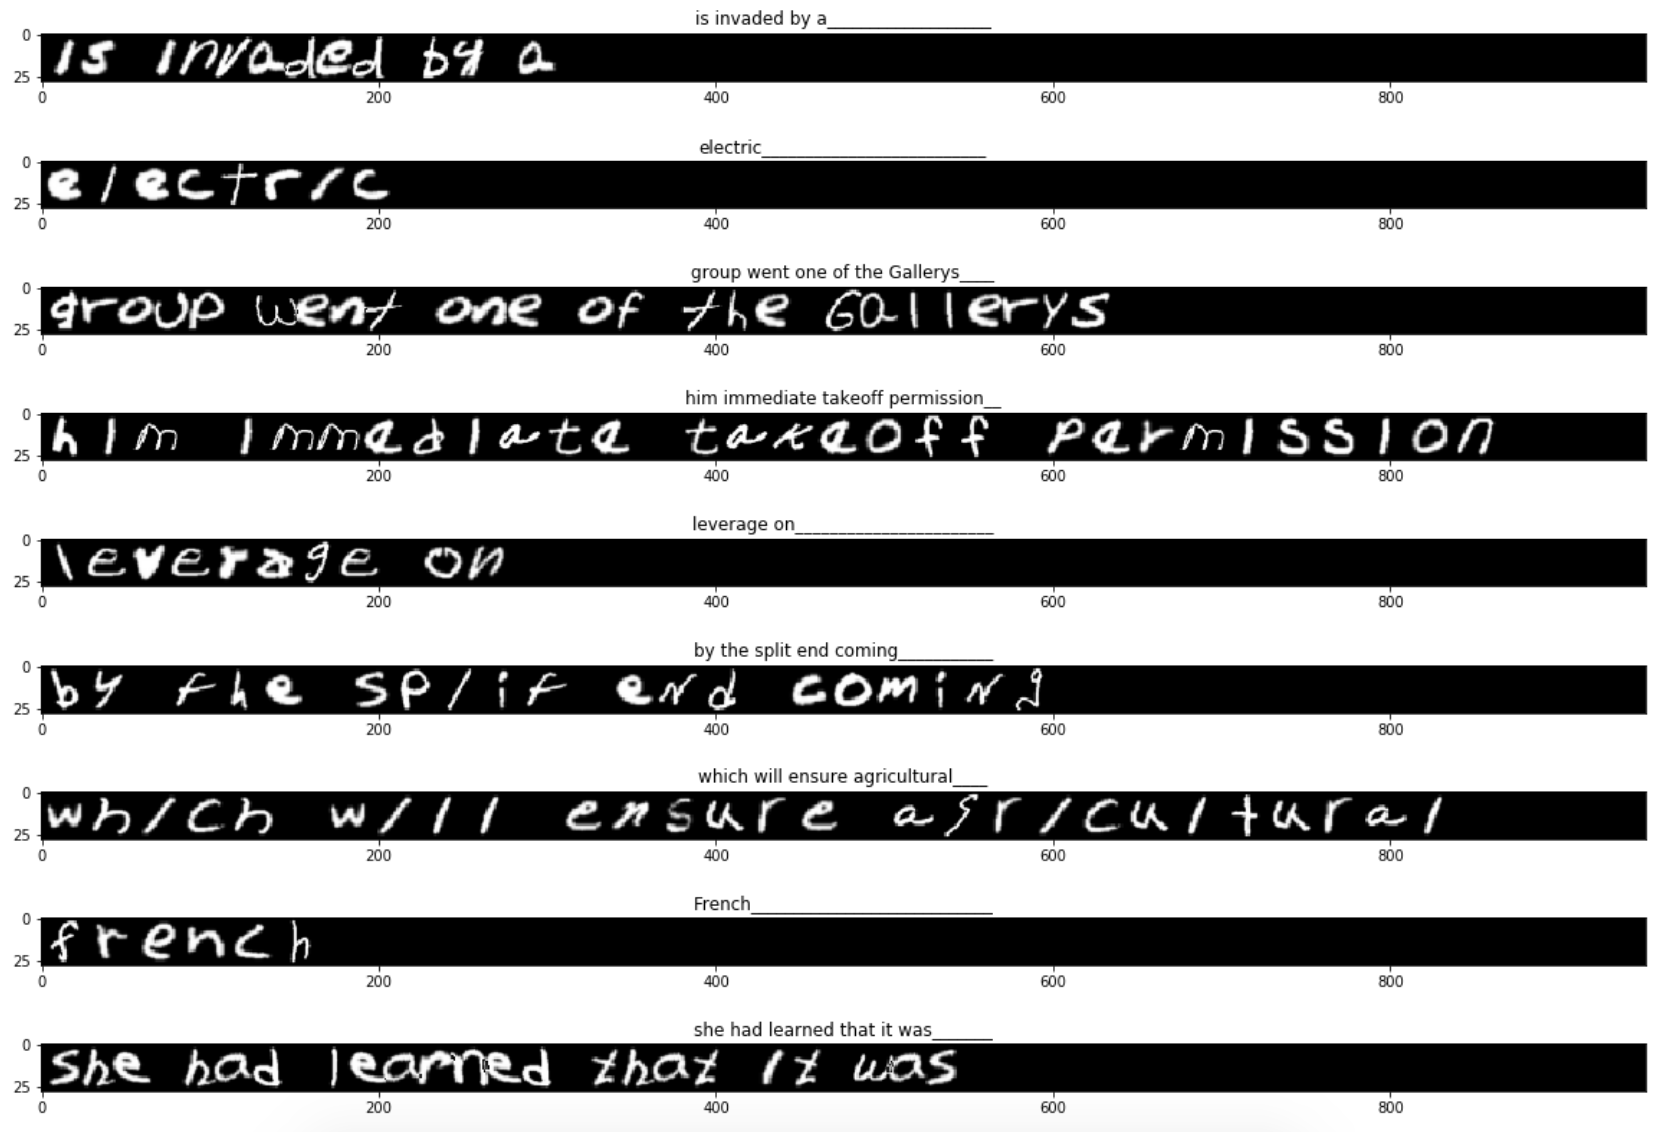 is invaded by a_________________
0
is invaded by a
25
0 200 400 600 800
electric__________________________
0
electric
25
0 200 400 600 800
group went one of the Gallerys____
0
group went one of the Gallerys
25
0 200 400 600 800
him immediate takeoff permission__
0
him immediate takeoff permission
25
0 200 400 600 800
leverage on_______________________
0
leverage on
25
0 200 400 600 800
by the split end coming___________
0
by the split end coming
25
0 200 400 600 800
which will ensure agricultural____
0
which will ensure agricultural
25
0 200 400 600 800
French____________________________
0
french
25
0 200 400 600 800
she had learned that it was_______
0
she had learned that it was
25
0 200 400 600 800